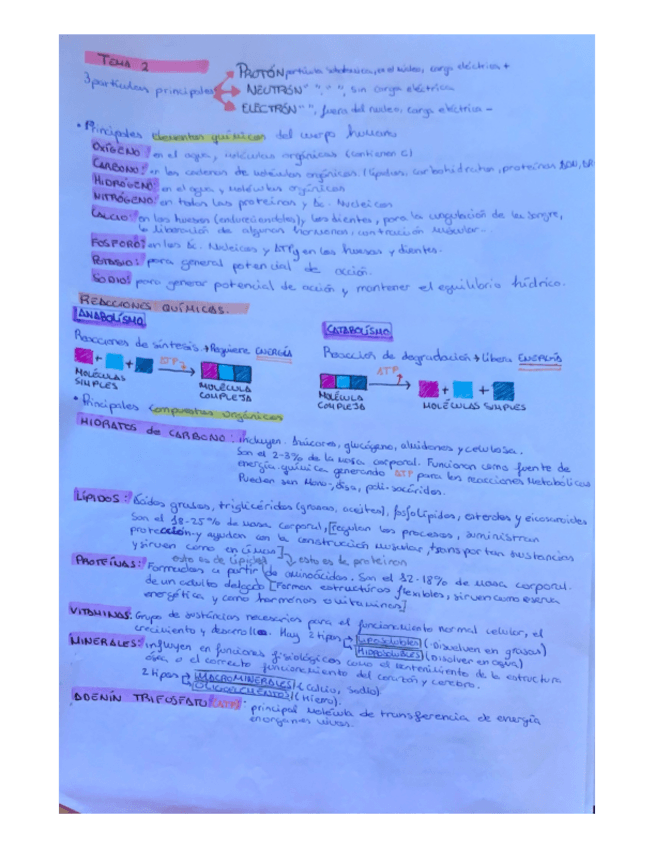 TEMA 2
3 partículas principales
PROTÓN partícula subatómica, en el núcleo, carga eléctrica +
NEUTRÓN " ", " ", sin carga eléctrica
ELECTRÓN " ", fuera del núcleo, carga eléctrica -
• Principales elementos químicos del cuerpo humano
OXÍGENO: en el agua, moléculas orgánicas (contienen C)
CARBONO: en las cadenas de moléculas orgánicas. (lípidos, carbohidratos, proteínas ADN,
HIDRÓGENO: en el agua y moléculas orgánicas
NITRÓGENO: en todas las proteínas y Ác. Nucleicos
CALCIO: en los huesos (endureciendolos), los dientes, para la coagulación de la sangre,
la liberación de algunas hormonas, contracción muscular.
FOSFORO: en los Ác. Nucleicos y ATP y en los huesos y dientes.
POTASIO: para general potencial de acción.
SODIO: para generar potencial de acción y mantener el equilibrio hídrico.
REACCIONES QUÍMICAS.
ANABOLISMO
CATABOLISMO
Reacciones de síntesis → Requiere ENERGÍA
Reacción de degradación → Libera ENERGÍA
+ + ATP
ATP + +
MOLÉCULAS SIMPLES
MOLÉCULA COMPLEJA
MOLÉCULA COMPLEJA
MOLÉCULAS SIMPLES
• Principales compuestos orgánicos
HIDRATOS de CARBONO: incluyen. Azúcares, glucógeno, almidones y celulosa.
Son el 2-3% de la masa corporal. Funcionan como fuente de
energía química generando ATP para las reacciones metabólicas
Pueden ser Mono-, disa, poli-sacáridos.
LÍPIDOS: Ácidos grasos, triglicéridos (grasas, aceites), fosfolípidos, esteroides y eicosanoides
Son el 18-25% de masa corporal, [regulan los procesos, suministran
protección y ayudan con la construcción muscular, transportan sustancias
y sirven como enzimas]
esto es de lípidos esto es de proteínas
PROTEÍNAS: Formadas a partir de aminoácidos. Son el 12-18% de masa corporal.
de un adulto delgado [Forman estructuras flexibles, sirven como reserva
energética y como hormonas o vitaminas]
VITAMINAS: Grupo de sustancias necesarias para el funcionamiento normal celular, el
crecimiento y desarrollo. Hay 2 tipos LIPOSOLUBLES (Disuelven en grasas)
HIDROSOLUBLES (Disolver en agua)
MINERALES: influyen en funciones fisiológicas como el sostenimiento de la estructura
ósea o el correcto funcionamiento del corazón y cerebro.
2 tipos MACROMINERALES (Calcio, Sodio).
OLIGOELEMENTO (Hierro).
ADENÍN TRIFOSFATO (ATP): principal molécula de transferencia de energía
en organismos vivos.